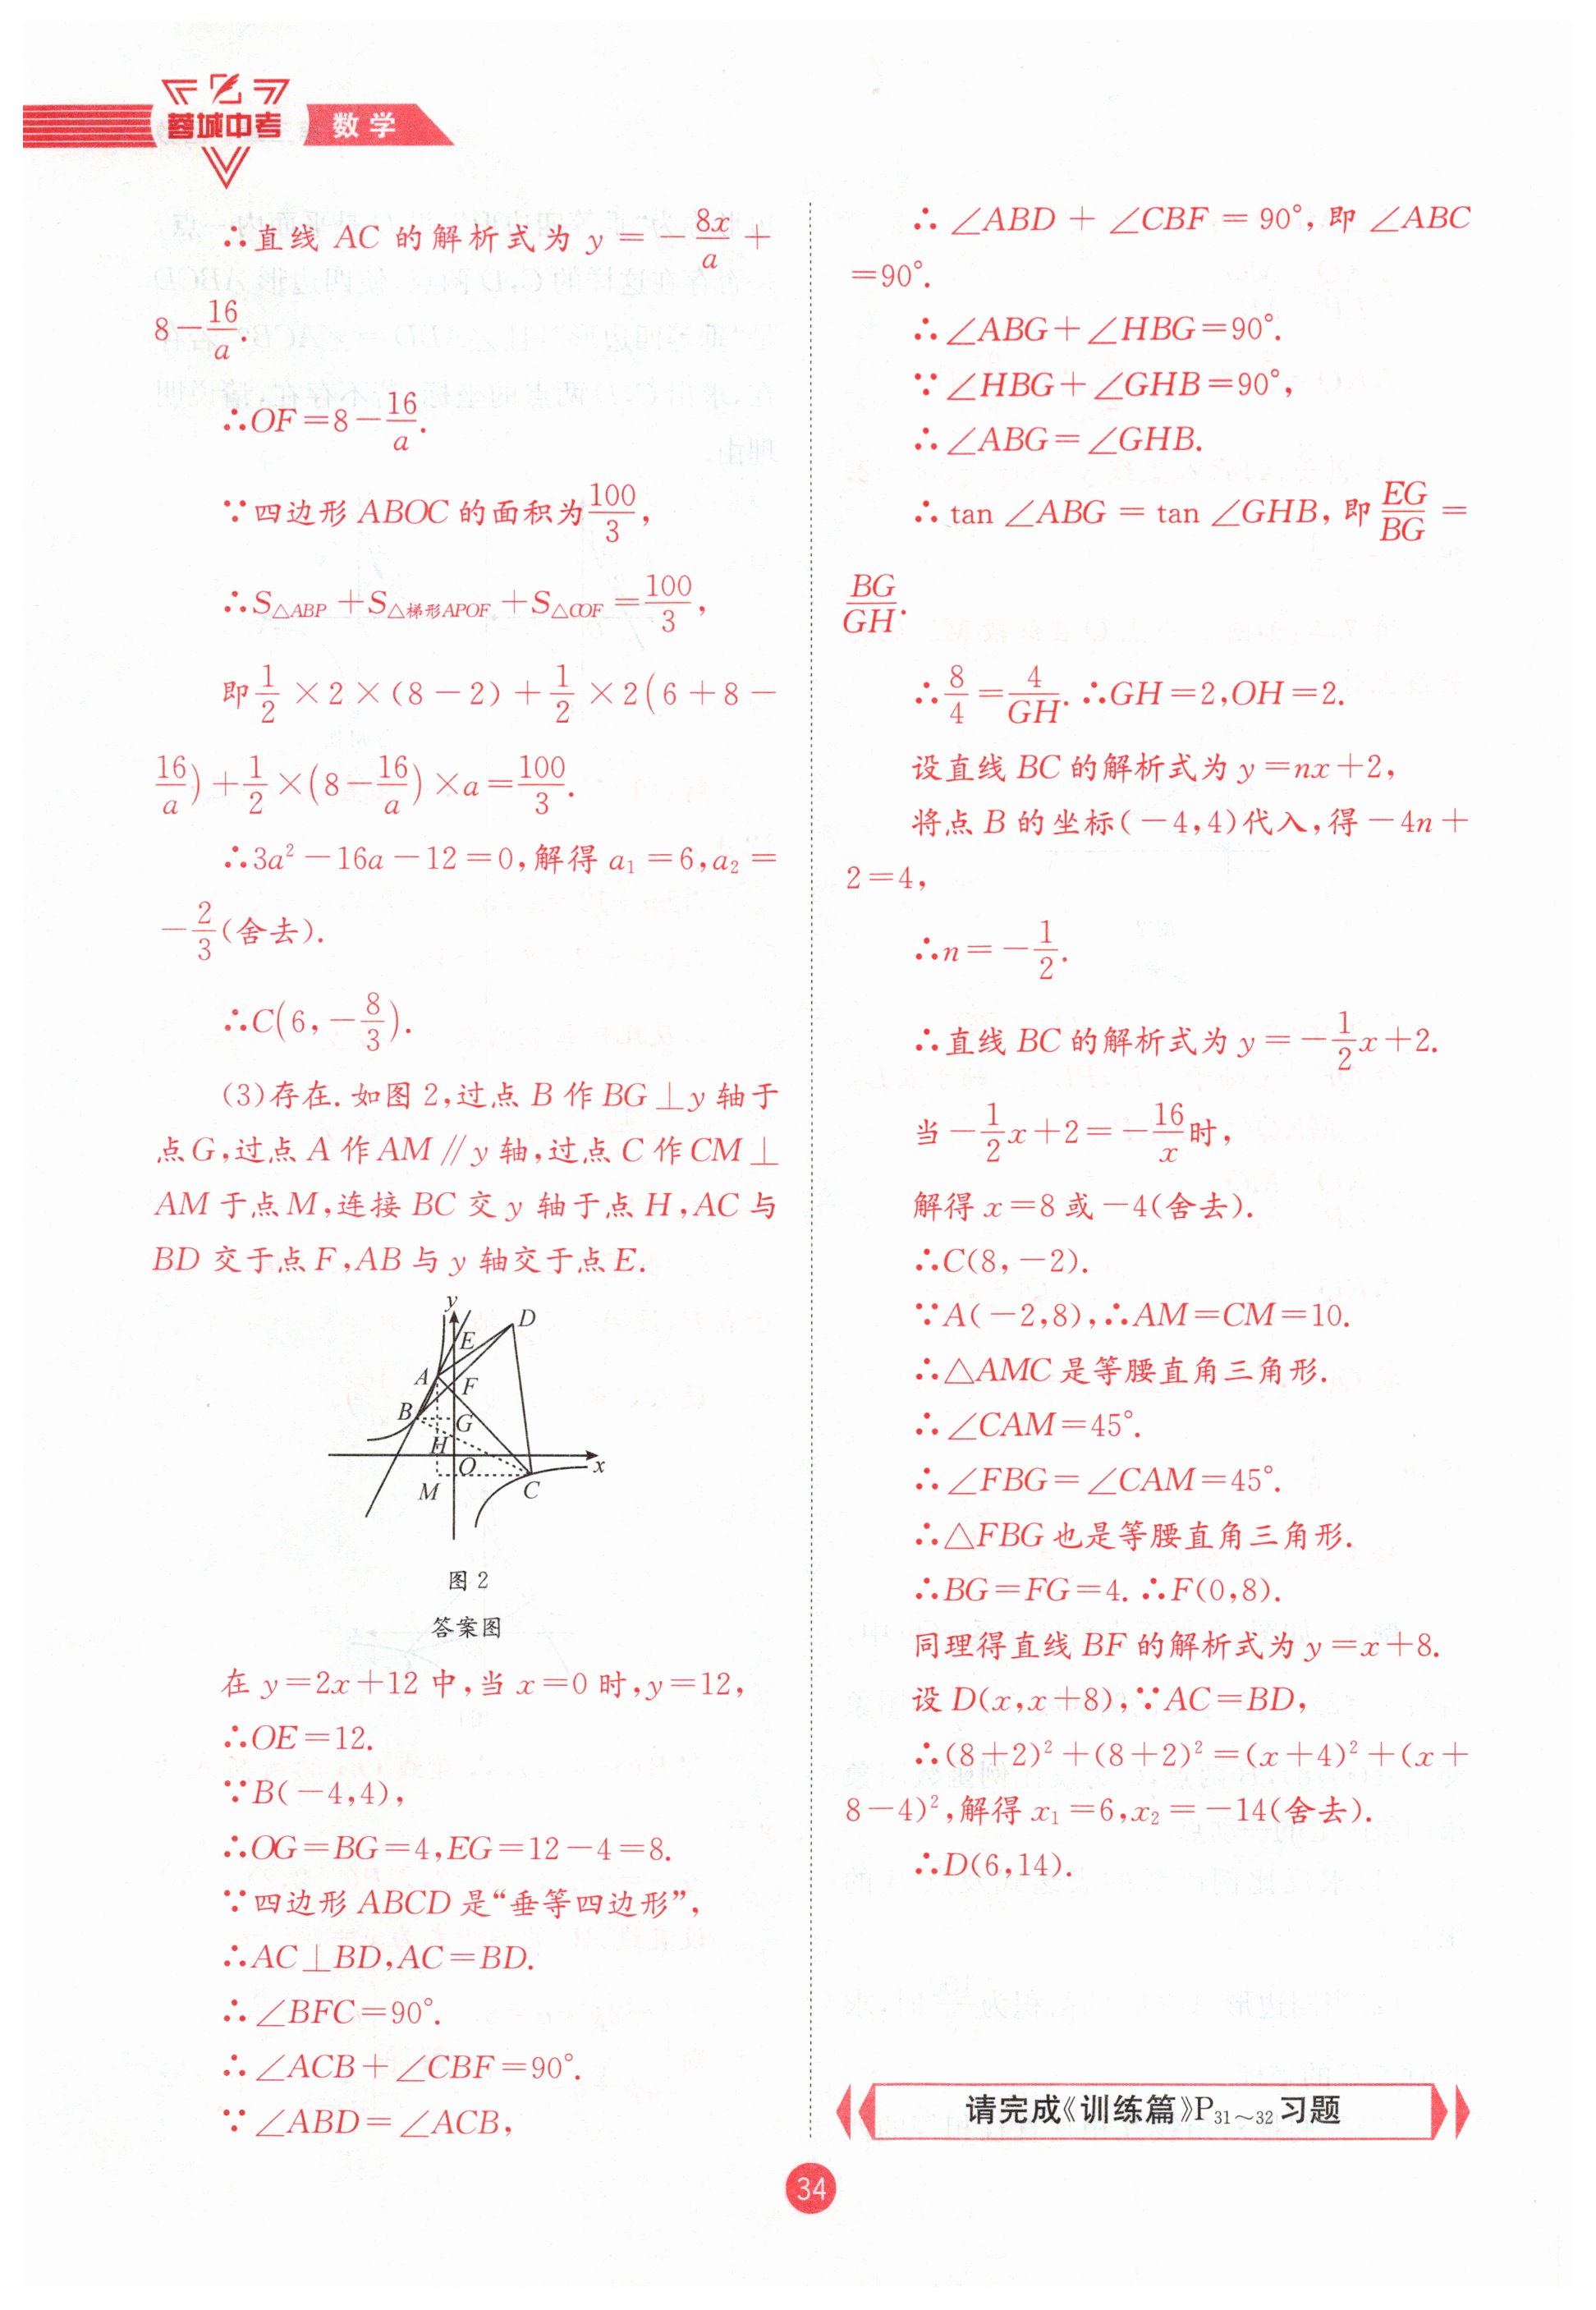 蓉城中考 数学
∴直线 AC 的解析式为 y=-8x/a+
8-16/a.
∴OF=8-16/a.
∵四边形 ABOC 的面积为100/3,
∴S△ABP+S△梯形APOF+S△COF=100/3,
即1/2×2×(8-2)+1/2×2(6+8-
16/a)+1/2×(8-16/a)×a=100/3.
∴3a²-16a-12=0,解得 a₁=6,a₂=
-2/3(舍去).
∴C(6,-8/3).
(3)存在.如图 2,过点 B 作 BG⊥y 轴于
点G,过点 A 作 AM∥y 轴,过点 C 作 CM⊥
AM 于点 M,连接 BC 交 y 轴于点 H,AC 与
BD 交于点 F,AB 与 y 轴交于点 E.
y
D
E
A
F
B
G
H
O
x
M
C
图 2
答案图
在 y=2x+12 中,当 x=0 时,y=12,
∴OE=12.
∵B(-4,4),
∴OG=BG=4,EG=12-4=8.
∵四边形 ABCD 是“垂等四边形”,
∴AC⊥BD,AC=BD.
∴∠BFC=90°.
∴∠ACB+∠CBF=90°.
∵∠ABD=∠ACB,
∴∠ABD+∠CBF=90°,即∠ABC
=90°.
∴∠ABG+∠HBG=90°.
∵∠HBG+∠GHB=90°,
∴∠ABG=∠GHB.
∴tan∠ABG=tan∠GHB,即EG/BG=
BG/GH.
∴8/4=4/GH.∴GH=2,OH=2.
设直线 BC 的解析式为 y=nx+2,
将点 B 的坐标(-4,4)代入,得-4n+
2=4,
∴n=-1/2.
∴直线 BC 的解析式为 y=-1/2x+2.
当-1/2x+2=-16/x时,
解得 x=8 或-4(舍去).
∴C(8,-2).
∵A(-2,8),∴AM=CM=10.
∴△AMC 是等腰直角三角形.
∴∠CAM=45°.
∴∠FBG=∠CAM=45°.
∴△FBG 也是等腰直角三角形.
∴BG=FG=4.∴F(0,8).
同理得直线 BF 的解析式为 y=x+8.
设 D(x,x+8),∵AC=BD,
∴(8+2)²+(8+2)²=(x+4)²+(x+
8-4)²,解得 x₁=6,x₂=-14(舍去).
∴D(6,14).
请完成《训练篇》P31~32习题
34